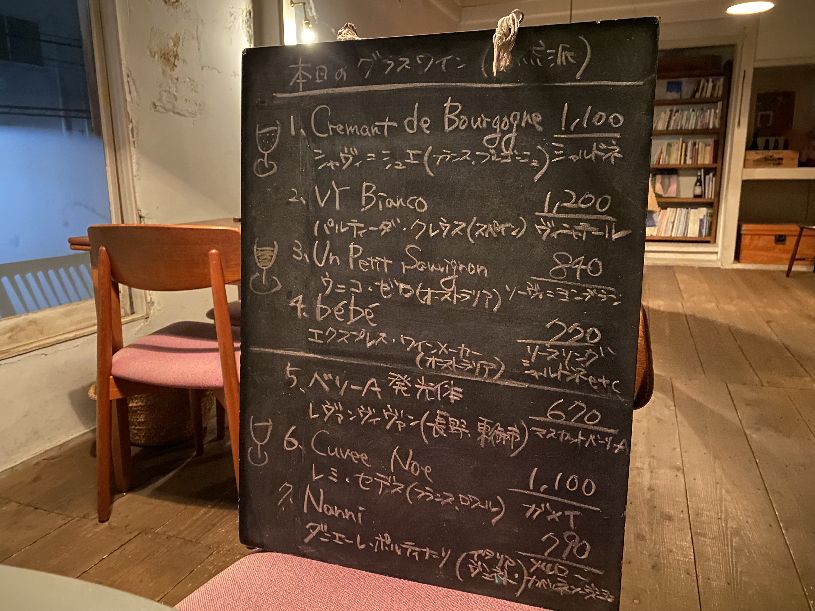 本日のグラスワイン (自然派)
1. Cremant de Bourgogne 1,100
シャヴィ=シュエ(フランス、ブルゴーニュ) シャルドネ
2. VY Bianco 1,200
パルティーダ・クレウス(スペイン) ヴィニャテール
3. Un Petit Sauvignon 840
ウニコ・ゼロ(オーストラリア) ソーヴィニヨンブラン
4. bébé 770
エクスプレス・ワインメーカー (オーストラリア) リースリング シャルドネetc
5. ベリーA 発光体 670
レヴァンヴィヴァン(長野 東御市) マスカットベリーA
6. Cuvee Noe 1,100
レミ・セデス(フランス、ロワール) ガメイ
7. Nanni 790
ダニエーレ・ポルティナーリ (イタリア ヴェネト) メルロー